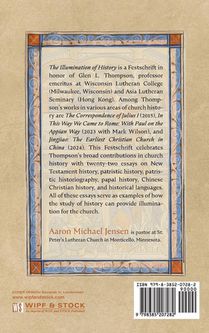 The Illumination of History is a Festschrift in
honor of Glen L. Thompson, professor
emeritus at Wisconsin Lutheran College
(Milwaukee, Wisconsin) and Asia Lutheran
Seminary (Hong Kong). Among Thomp-
son's works in various areas of church history
are The Correspondence of Julius I (2015), In
This Way We Came to Rome: With Paul on the
Appian Way (2023 with Mark Wilson), and
Jingjiao: The Earliest Christian Church in
China (2024). This Festschrift celebrates
Thompson's broad contributions in church
history with twenty-two essays on New
Testament history, patristic history, patris-
tic historiography, papal history, Chinese
Christian history, and historical languages.
All of these essays serve as examples of how
the study of history can provide illumina-
tion for the church.
Aaron Michael Jensen is pastor at St.
Peter's Lutheran Church in Monticello, Minnesota.
www.wipfandstock.com
WIPF & STOCK
ISBN 979-8-3852-0728-2
90000
9 798385 207282